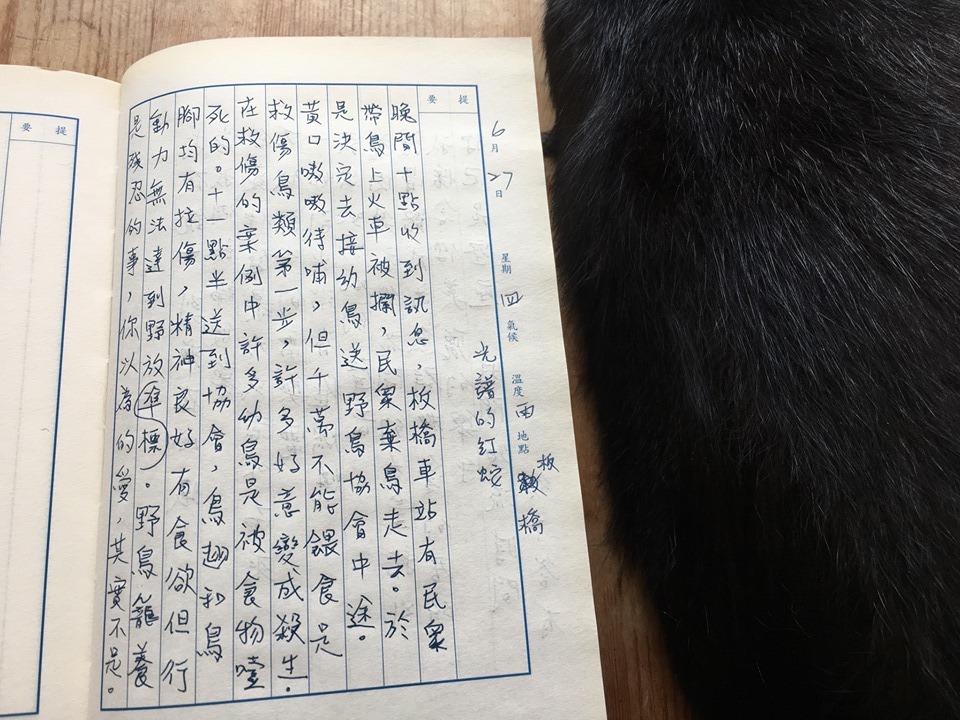 提要
6月27日 星期四 氣候 溫度 雨 地點 板橋
光譜的紅蛇
晚間十點收到訊息,板橋車站有民眾
帶鳥上火車被攔,民眾棄鳥走去。於
是決定去接幼鳥送野鳥協會中途。
黃口嗷嗷待哺,但千萬不能餵食是
救傷鳥類第一步,許多好意變成殺生。
在救傷的案例中許多幼鳥是被食物噎
死的。十一點半送到協會,鳥翅和鳥
腳均有拉傷,精神良好有食欲但行
動力無法達到野放準標。野鳥籠養
是殘忍的事,你以為的愛,其實不是。
提要